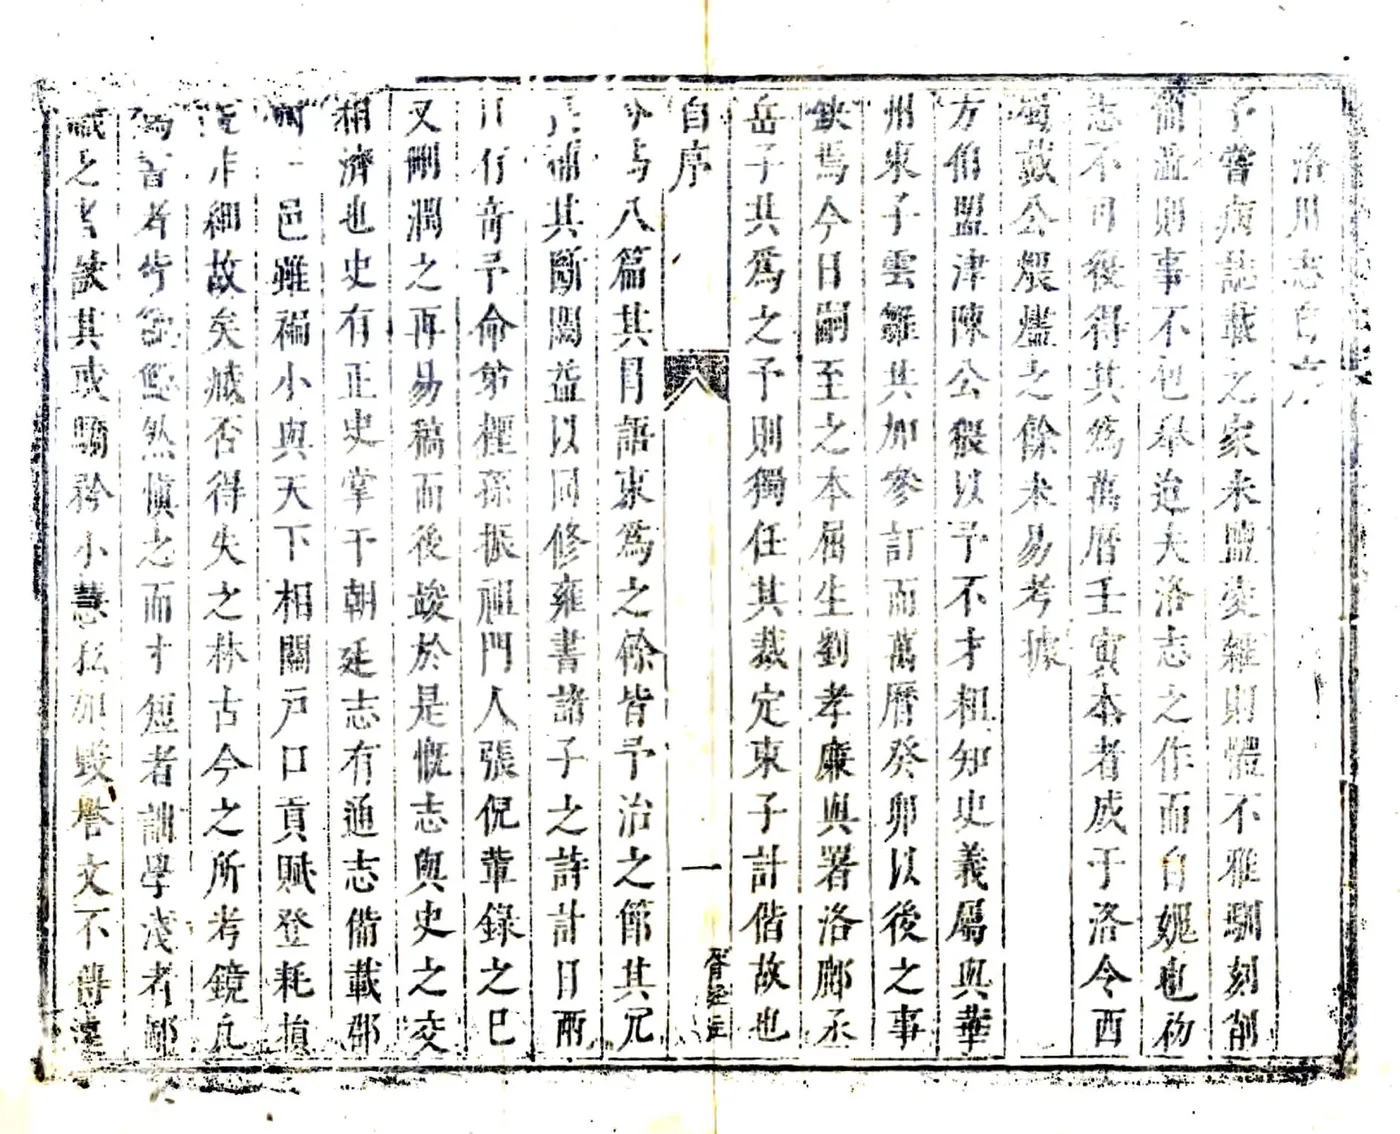 洛川志自序
予嘗病誌載之家未盡变雜則體不雅馴刻削
簡澁則事不包舉迨夫洛志之作而自娓也初
志不可復得其爲萬曆壬寅本者成于洛令西
蜀戴公煨燼之餘未易考據
方伯盟津陳公猥以予不才粗知史義屬與華
州東子雲雛共加參訂而萬曆癸卯以後之事
缺焉今日嗣至之本届生劉孝廉與署洛鄜丞
岳子其爲之予則獨任其裁定東子計偕故也
自序
一
今爲八篇其目語東爲之餘皆予治之節其冗
補其斷闕益以同修雍書諸子之詩計日兩
月行奇予命弟 孫振祖門人張倪輩錄之已
又刪潤之再易稿而後竣於是慨志與史之交
相濟也史有正史掌于朝廷志有通志備載郡
一邑雖褊小與天下相關戶口貢賦登耗損
非細故矣臧否得失之林古今之所考鏡
者 然愼之而才短者詘學淺者鄙
之者缺其或驕矜小慧私如毀譽文不傳